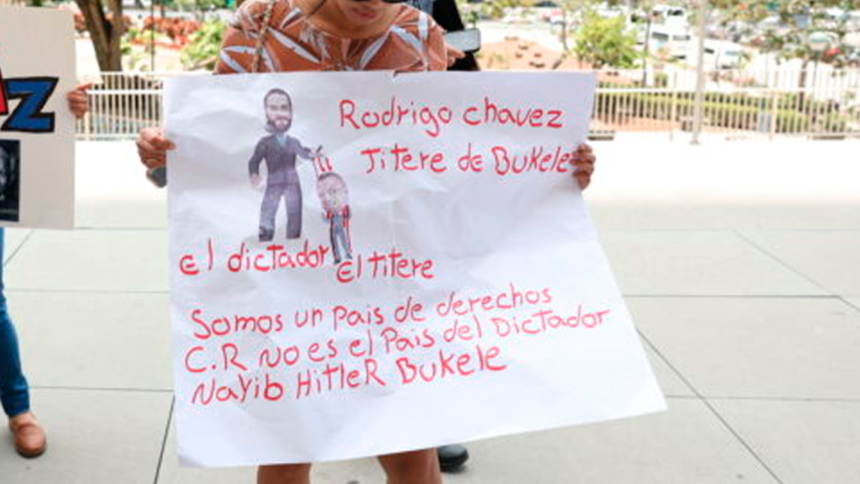 AZ
Rodrigo chavez
Titere de Bukele
el dictador
El titere
Somos un Pais de derechos
C.R No es el Pais del Dictador
Nayib HitleR Bukele